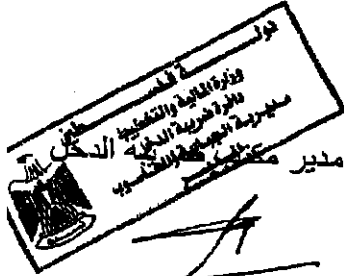 دولة فلسطين
وزارة المالية والتخطيط
دائرة ضريبة الدخل
مديرية الجباية
مدير مكتب ضريبة الدخل